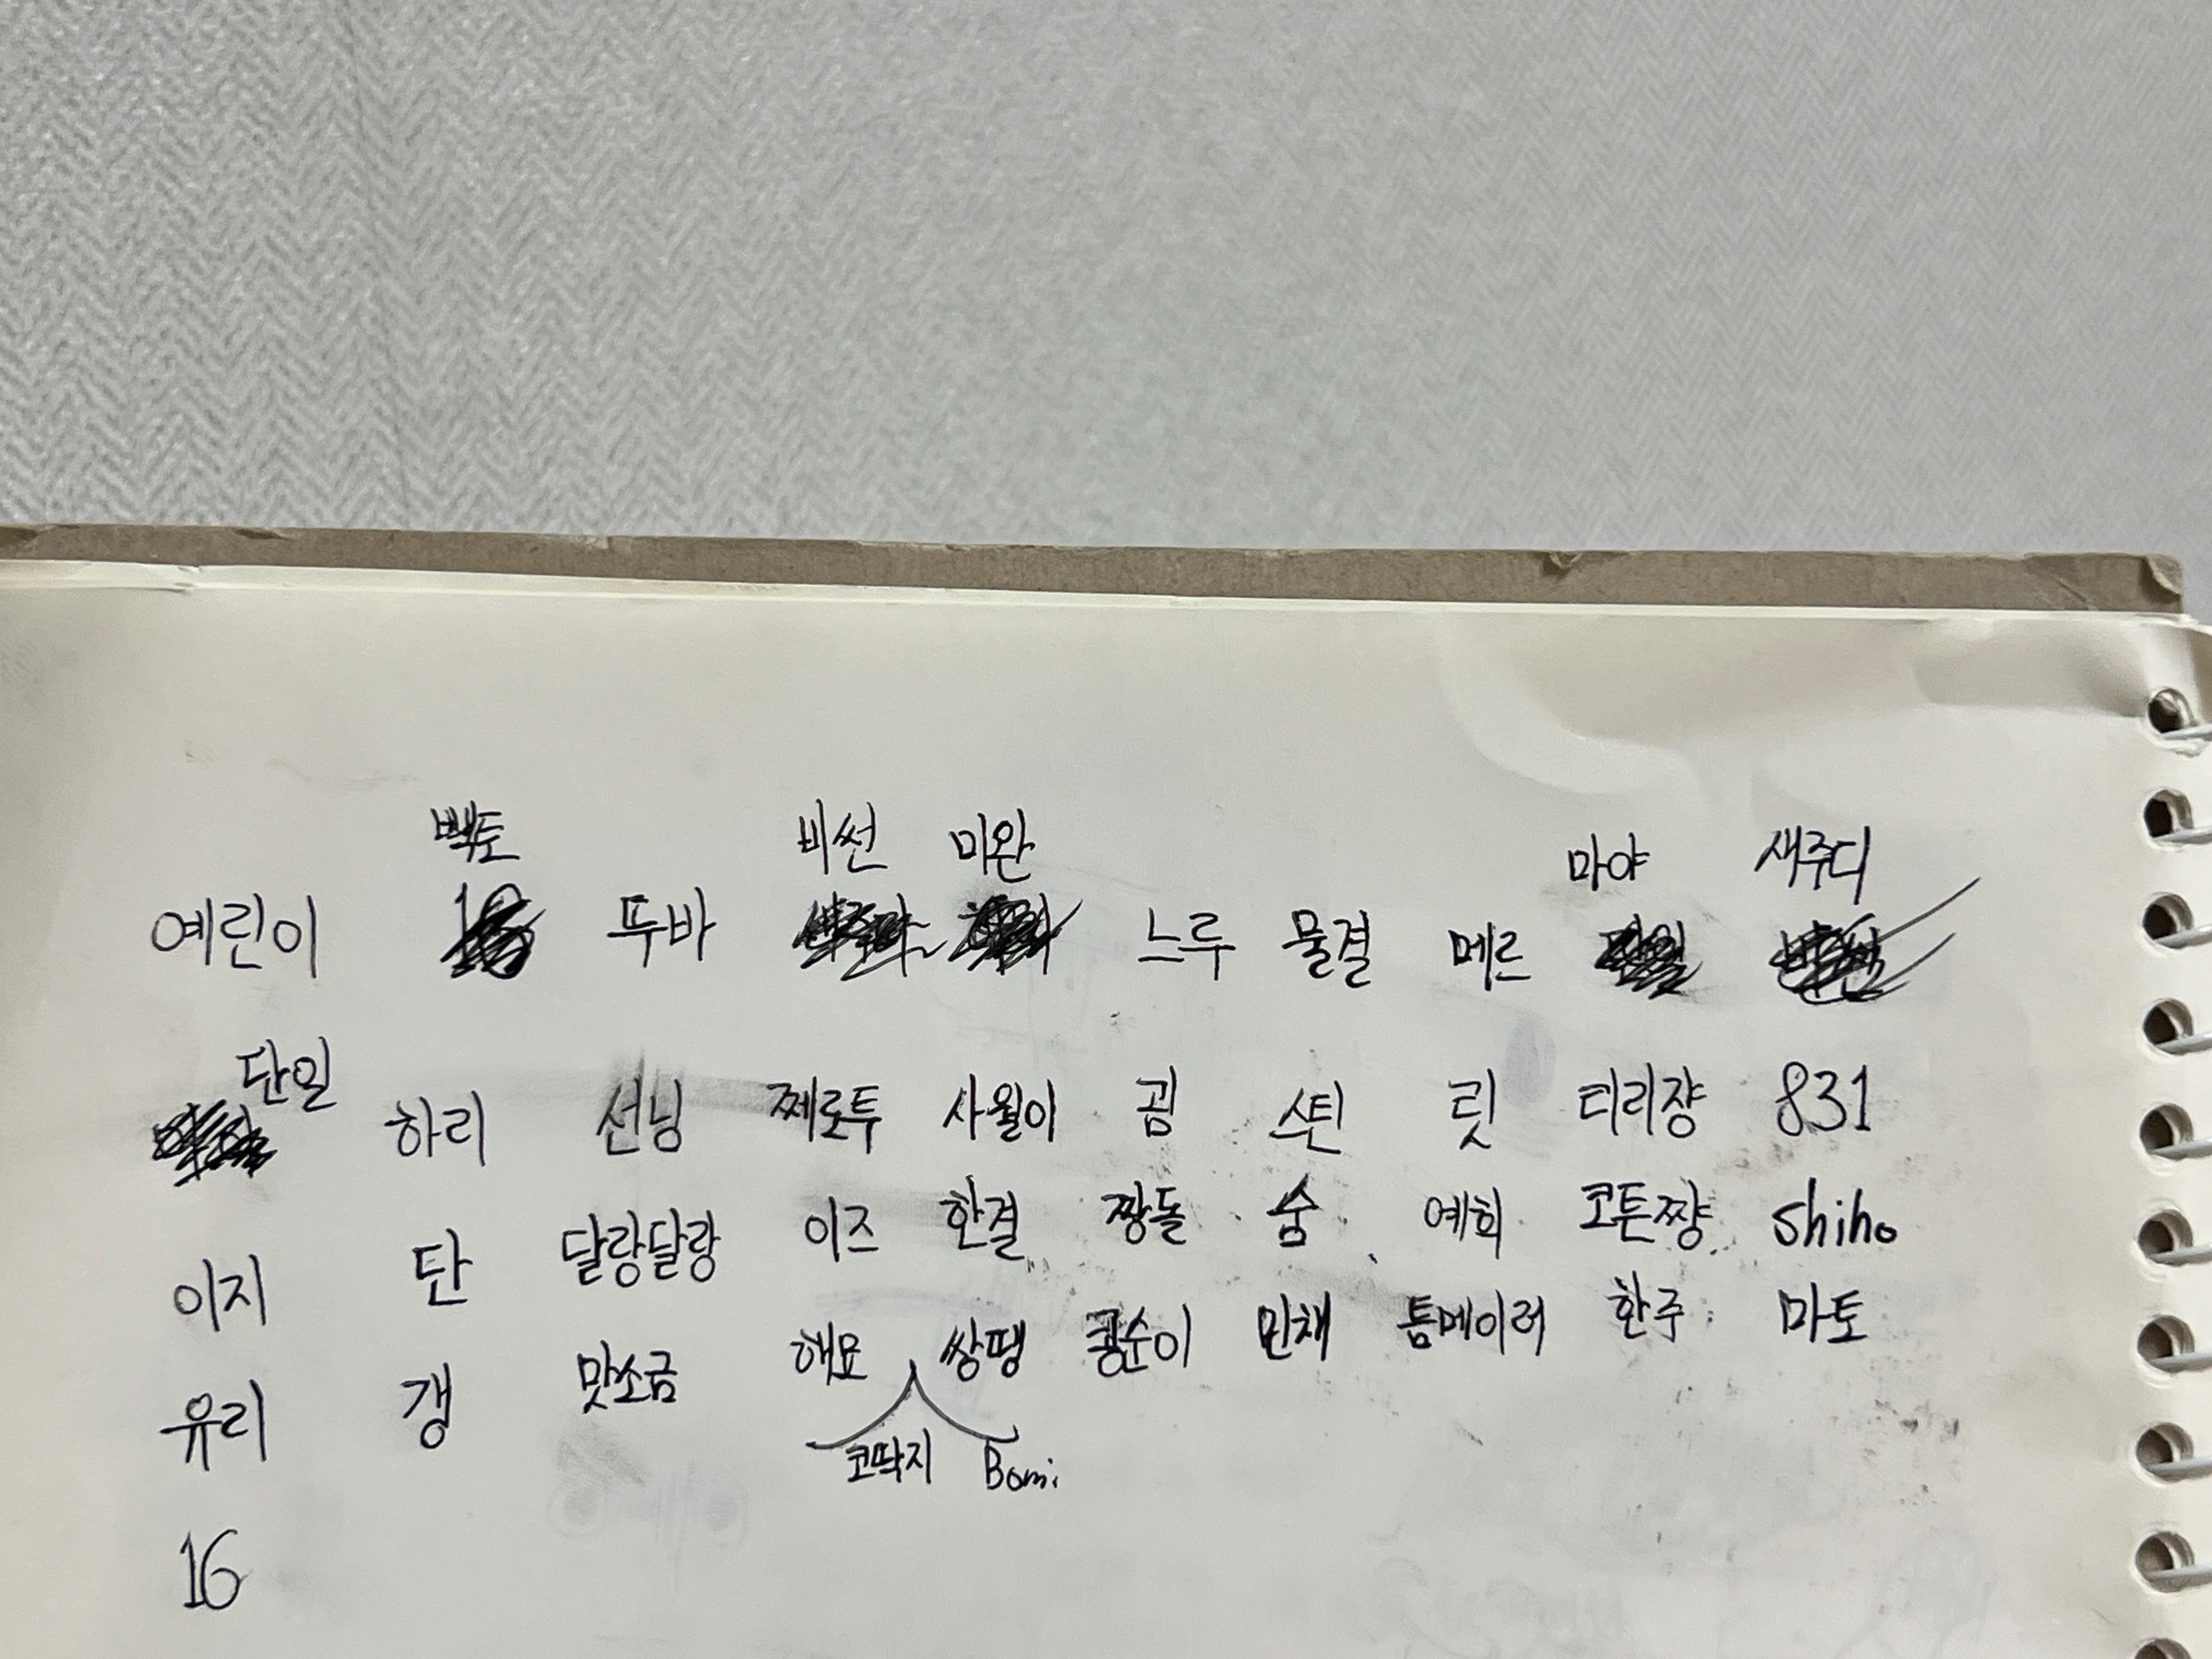 빽토 비썬 미완 마야 새주디
예린이 뚜바 느루 물결 메르
단일
하리 선닝 쩨로투 사월이 곰 스틴 릿 티리쟝 831
이지 단 달랑달랑 이즈 한결 짱돌 숨 예희 코튼쨩 shiho
유리 갱 맛소금 해묘 쌍땡 콩순이 민채 톰메이러 한주 마토
코딱지 Bomi
16